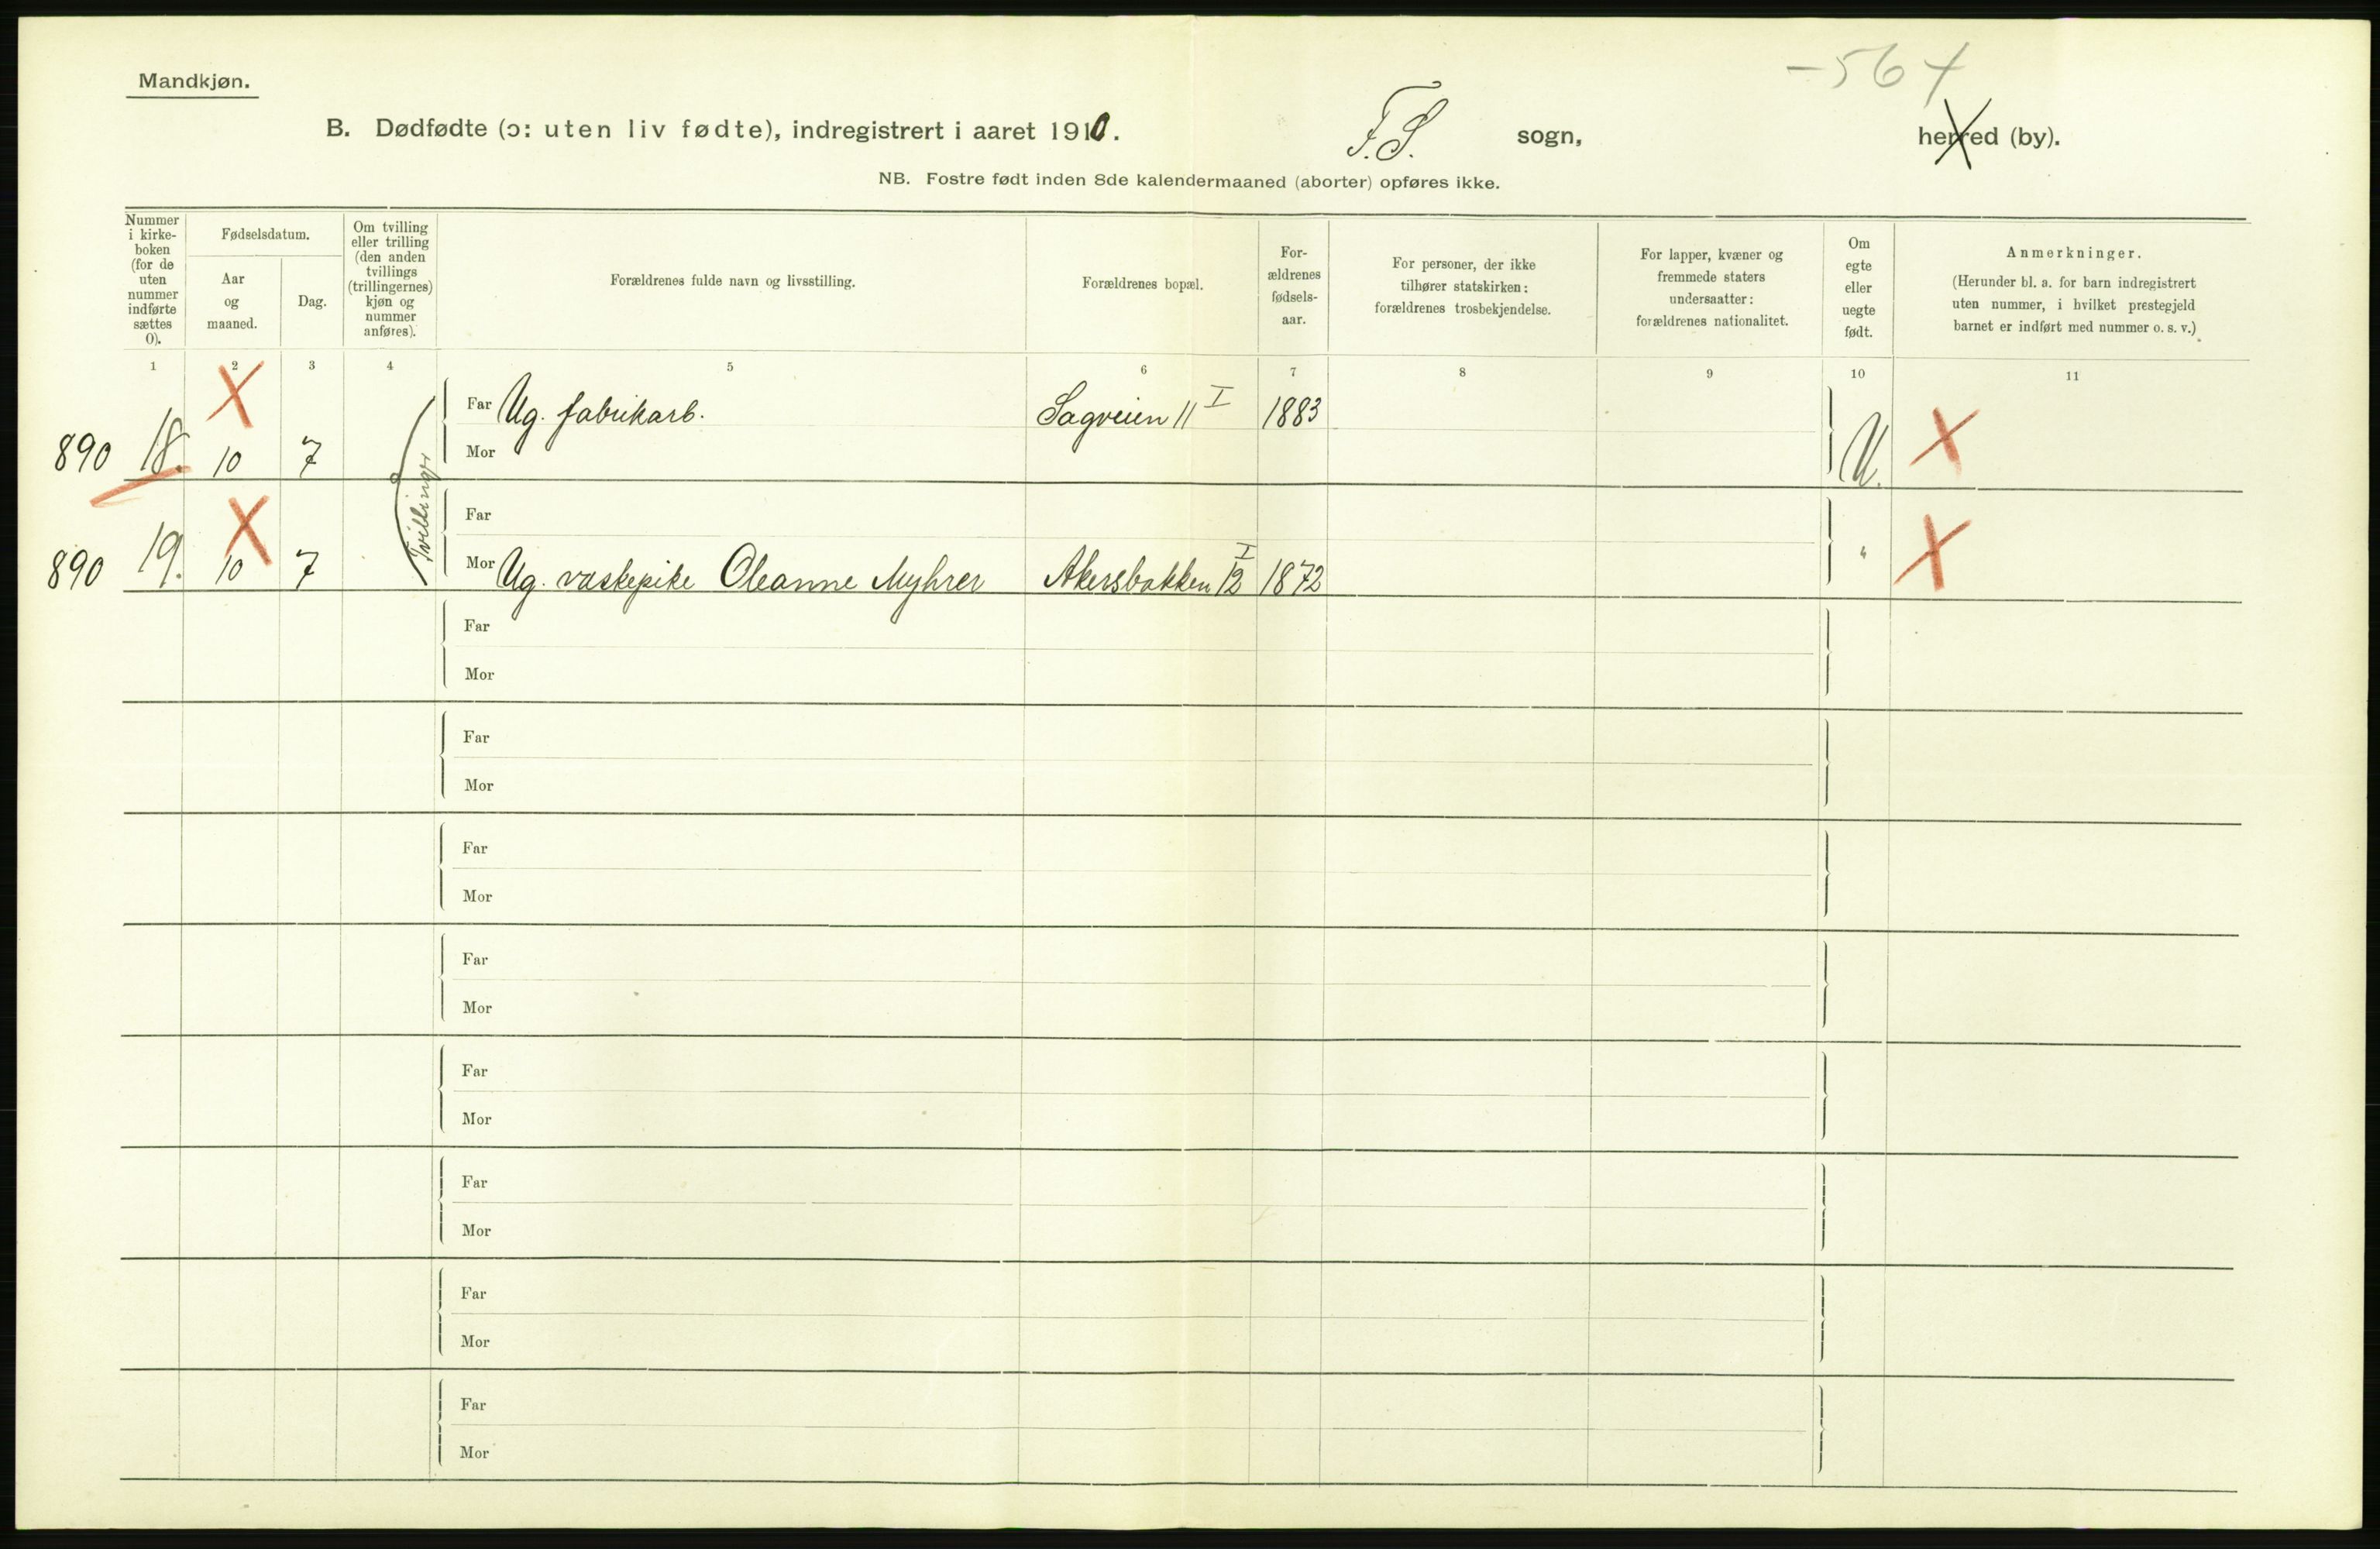 -564
Mandkjøn.
B. Dødfødte (ɔ: uten liv fødte), indregistrert i aaret 1910. F.S. sogn, herred (by).
NB. Fostre født inden 8de kalendermaaned (aborter) opføres ikke.
Nummer
i kirke-
boken
(for de
uten
nummer
indførte
sættes
0).
Fødselsdatum.
Aar
og
maaned.
Dag.
Om tvilling
eller trilling
(den anden
tvillings
(trillingernes)
kjøn og
nummer
anføres).
Forældrenes fulde navn og livsstilling.
Forældrenes bopæl.
For-
ældrenes
fødsels-
aar.
For personer, der ikke
tilhører statskirken:
forældrenes trosbekjendelse.
For lapper, kvæner og
fremmede staters
undersaatter:
forældrenes nationalitet.
Om
egte
eller
uegte
født.
Anmerkninger.
(Herunder bl. a. for barn indregistrert
uten nummer, i hvilket prestegjeld
barnet er indført med nummer o. s. v.)
1 2 3 4 5 6 7 8 9 10 11
Far Ug. fabrikarb. Sagveien 11 I 1883
890 18. 10 7 Mor U.
Tvillinger
Far
890 19. 10 7 Mor Ug. vaskepike Oleanne Myhrer Akersbakken 12 I 1872 "
Far
Mor
Far
Mor
Far
Mor
Far
Mor
Far
Mor
Far
Mor
Far
Mor
Far
Mor